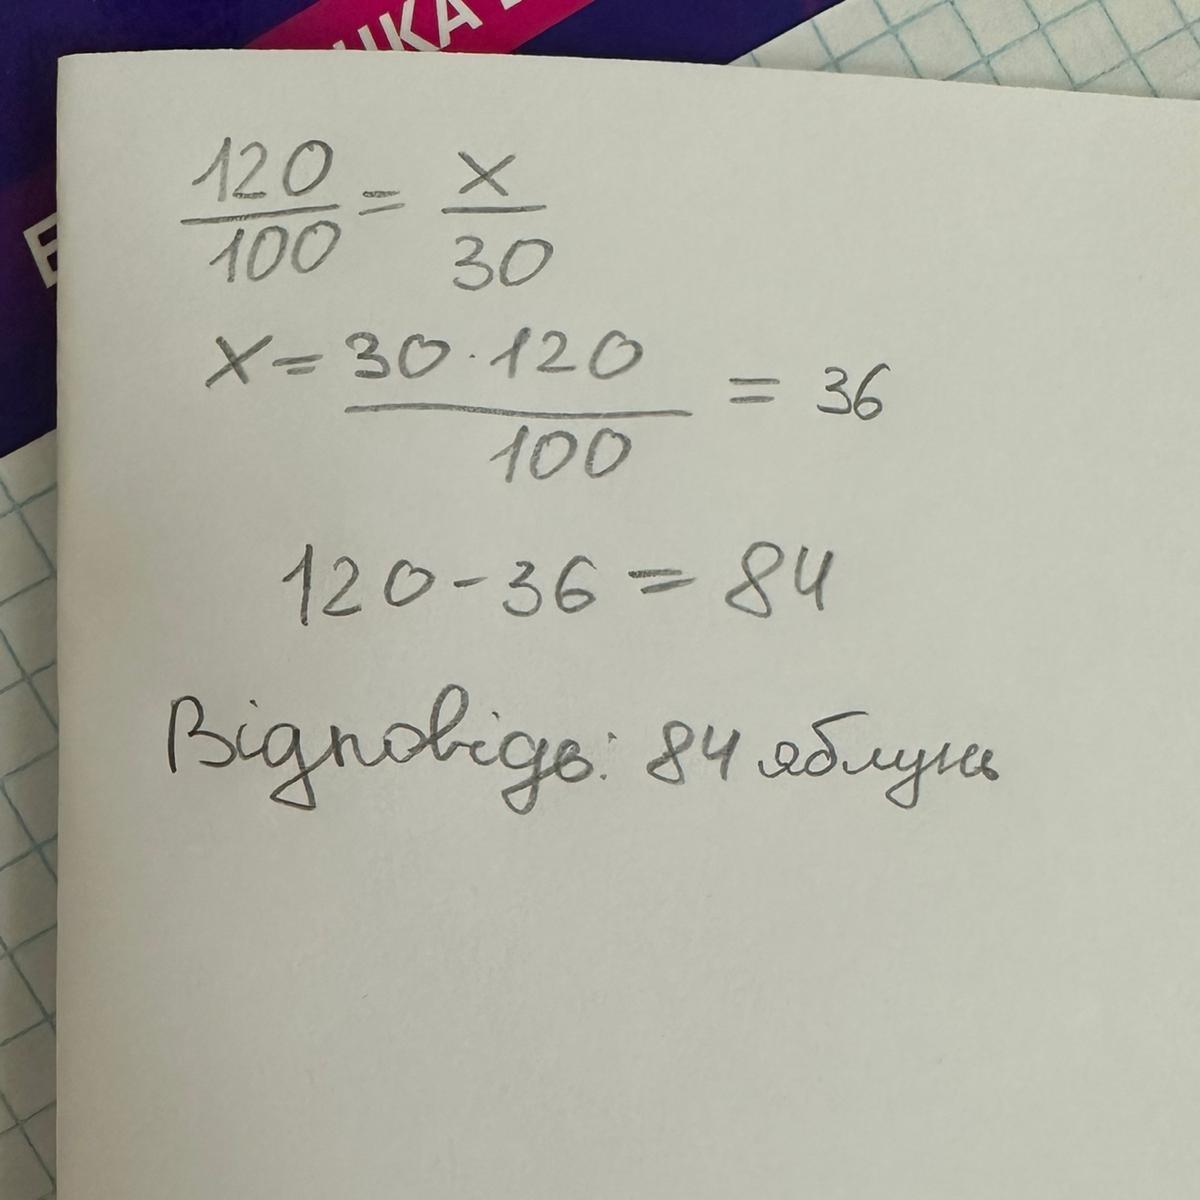 120/100 = x/30
x = 30·120/100 = 36
120 - 36 = 84
Відповідь: 84 яблунь